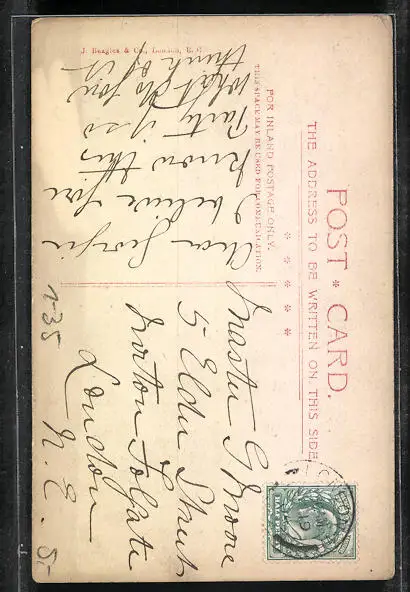 POST CARD.
THE ADDRESS TO BE WRITTEN ON THIS SIDE
FOR INLAND POSTAGE ONLY.
THIS SPACE MAY BE USED FOR COMMUNICATION.
Dear Georgie
I believe you
know this
Party if so
what do you
think of it
J. Beagles & Co., London, E.C.
Master G Moore
5 Elder Street
Norton Folgate
London
N. E.
1-35
5-
HALF PE